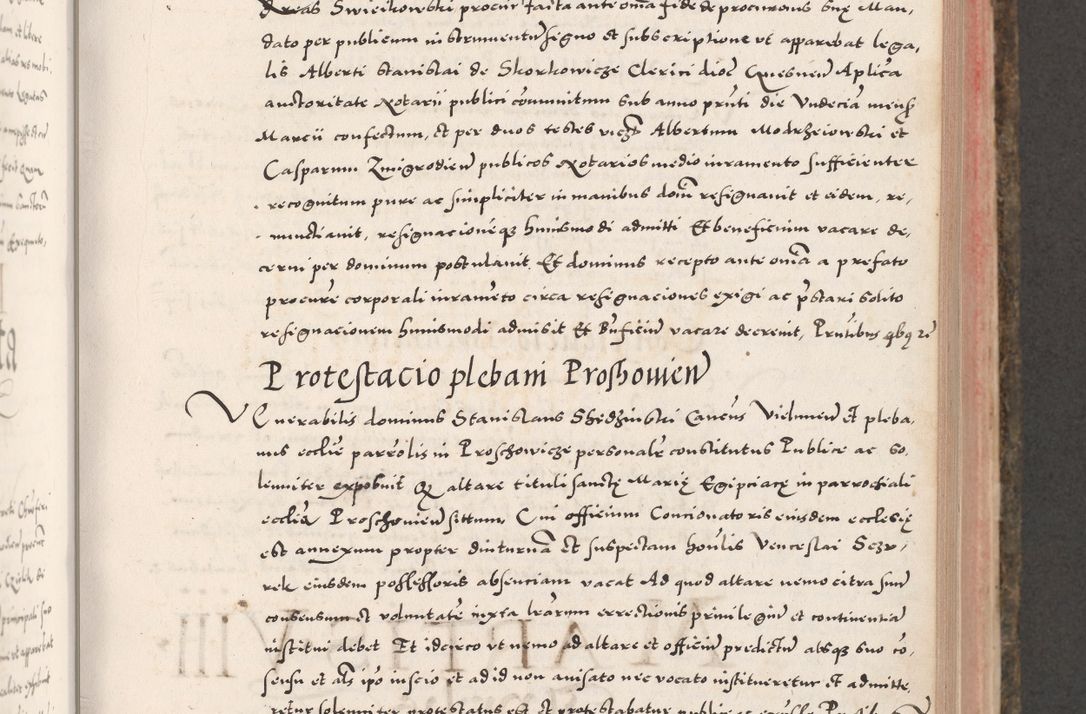 dreas Swieikowski procur facta ante omia fide de procuronis suę Man,
dato per publicum instrumentu segno et subscriptione vt apparebat lega,
lis Alberti Stanislai de Skorkowicze Clerici dioc Gnesnen Aplica
auctoritate Notarii publici comunitum sub anno pruti die Vndecia mensz
Marcii confectum, et per duos testes vicz Albertum Modrzeiowski et
Casparum Zmigrodien publicos Notarios medio iuramento sufficienter
recognitum pure ac simpliciter in manibus domi resignauit et eidem, re,
nunctiauit, resignacioneqz huiusmodi admitti Et beneficium vacare de,
cerni per dominum postulauit. Et dominus recepto ante omia a prefato
procure corporali iurameto circa resignaciones exigi ac pstari solito
resignacionem huiusmodi admisit Et Bnficiu vacare decreuit, Prutibus qbq
Protestacio plebani Proshouien
VEnerabilis dominus Stanislaus Shedzinski Cancus Vielunen et pleba,
nus ecclie parrolis in Proschowicze personalr constitutus Publice ac so,
lenniter exposuit Q altare tituli sanctę Marię Egipciacę in parrochiali
ecclia Proschouien situm Cui officium Concionatoris eiusdem ecclesię
est annexum propter diuturna et suspectam honlis Venceslai Sczu,
rek eiusdem possessoris absenciam vacat Ad quod altare nemo citra suu
consensum et voluntate iuxta lrarum errectionis priuilegiu et continentia
institui debet Et idcirco vt nemo ad altare et officiu predictu absqz suo co,
sensu et als ipo inscio et ad id non auisato nec vocato institueretur et admitte,
retur solenniter protestatus est et protestabatur publice ac